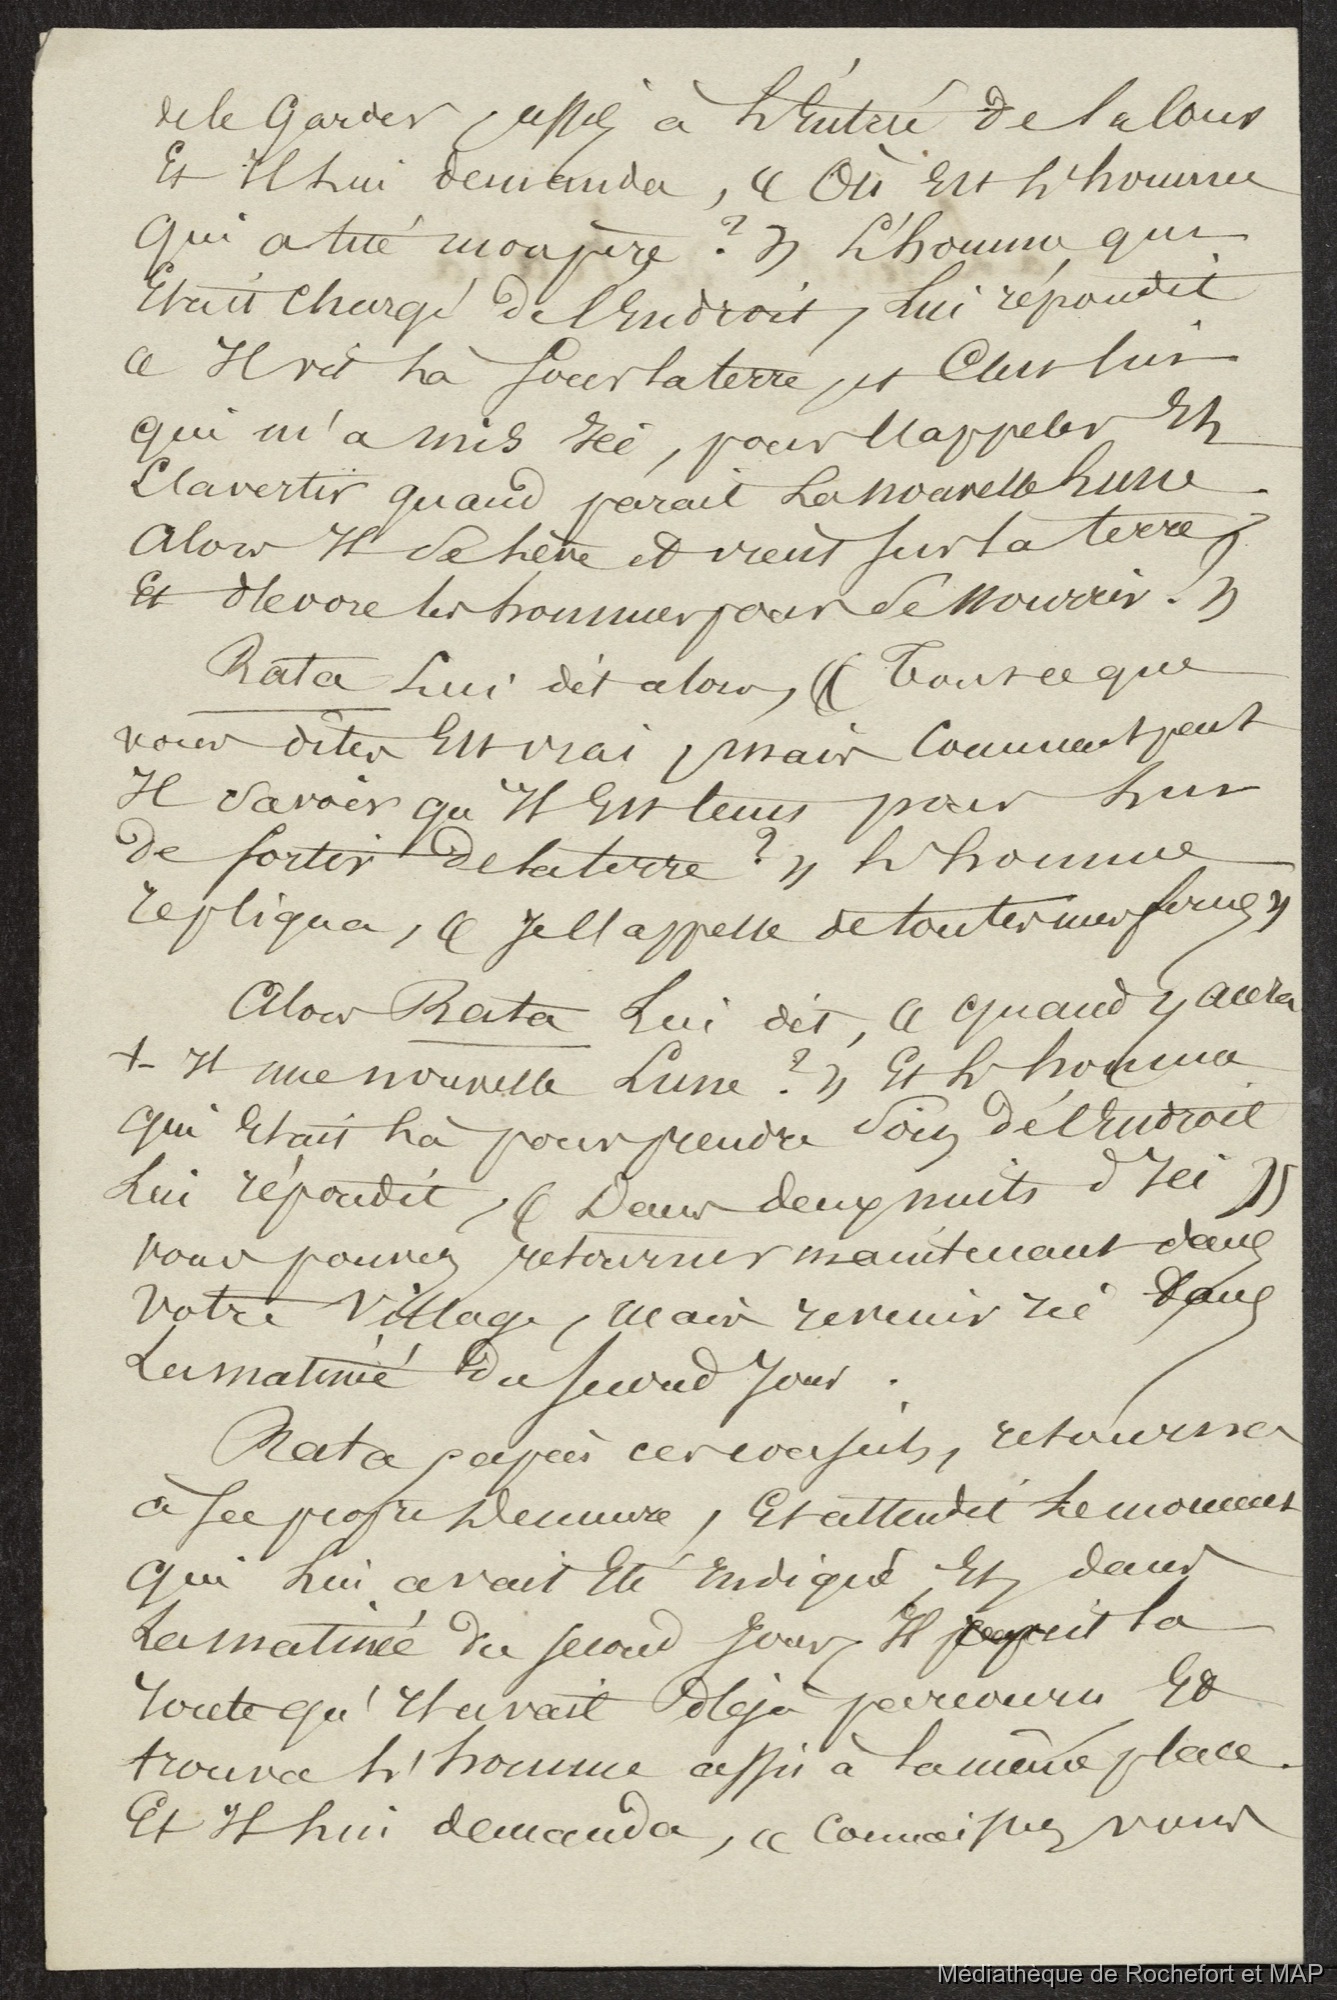 de le Garder, assis à L'Entrée de la Cour
Et Il Lui demanda, « Où Est L'homme
qui a tué mon père ? » L'homme qui
Etait Chargé de l'Endroit, Lui répondit
« Il vit Là sous la terre, et C'est lui
qui m'a mis Ici, pour l'appeler Et
L'avertir quand parait La nouvelle Lune.
Alors Il se Lève et vient sur la terre,
Et dévore les hommes pour se nourrir. »
Rata Lui dit alors, « Tout ce que
vous dites Est vrai, mais Comment peut
Il savoir qu'Il Est tems pour Lui
de sortir de la terre ? » L'homme
repliqua, « Je l'appelle de toutes mes forces »
Alors Rata Lui dit, « quand y aura
t- Il une nouvelle Lune ? » Et L'homme
qui Etait Là pour prendre soin de l'Endroit
Lui répondit, « Dans deux nuits d'Ici »
vous pouvez retourner maintenant dans
votre Village, mais revenir Ici Dans
La matinée du second Jour.
Rata, après ces conseils, retourna
à sa propre Demeure, Et attendit Le moment
qui Lui avait Eté Indiqué, Et, dans
La matinée du second Jour, Il reprit la
route qu'Il avait déjà parcouru Et
trouva L'homme assis à la même place.
Et Il Lui demanda, « Connaissez vous
Médiathèque de Rochefort et MAP